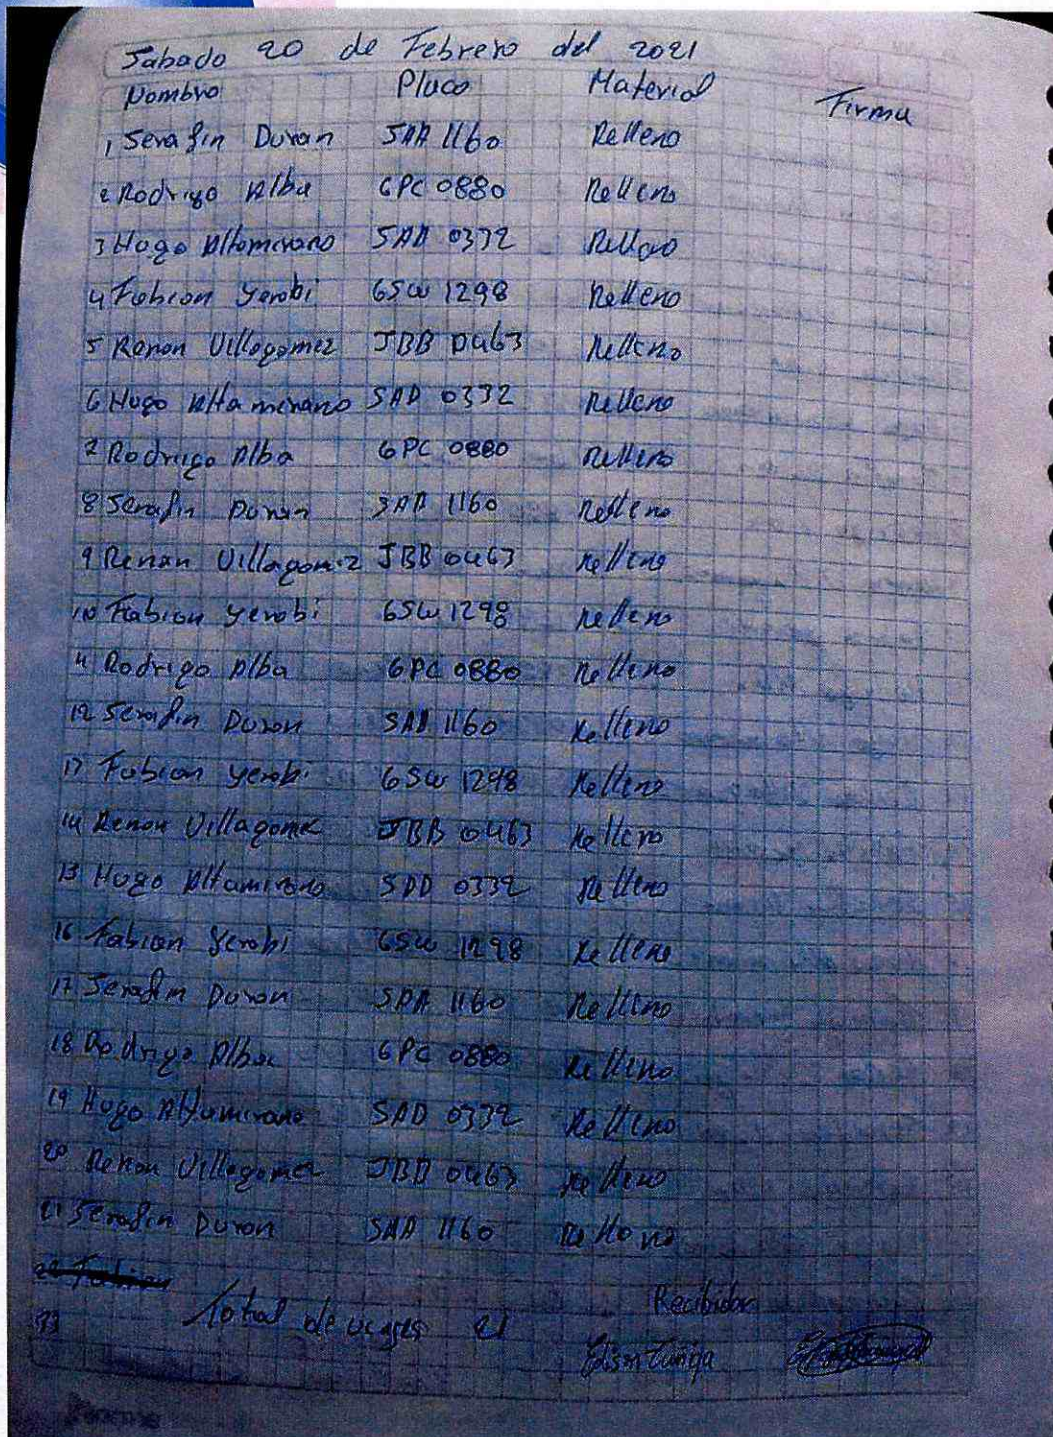 Sabado 20 de Febrero del 2021
Nombro Placo Material Firma
1 Serafin Duran SAA 1160 Relleno
2 Rodrigo Alba GPC 0880 Relleno
3 Hugo Altamirano SAD 0332 Relleno
4 Fabian Yerobi GSW 1298 Relleno
5 Renan Villagomez JBB 0463 Relleno
6 Hugo Altamirano SAD 0332 Relleno
7 Rodrigo Alba GPC 0880 Relleno
8 Serafin Duran SAA 1160 Relleno
9 Renan Villagomez JBB 0463 Relleno
10 Fabian Yerobi GSW 1298 Relleno
11 Rodrigo Alba GPC 0880 Relleno
12 Serafin Duran SAA 1160 Relleno
13 Fabian Yerobi GSW 1298 Relleno
14 Renan Villagomez JBB 0463 Relleno
15 Hugo Altamirano SAD 0332 Relleno
16 Fabian Yerobi GSW 1298 Relleno
17 Serafin Duran SAA 1160 Relleno
18 Rodrigo Alba GPC 0880 Relleno
19 Hugo Altamirano SAD 0332 Relleno
20 Renan Villagomez JBB 0463 Relleno
21 Serafin Duran SAA 1160 Relleno
22 Fabian
Total de viages 21 Recibidor
Edison